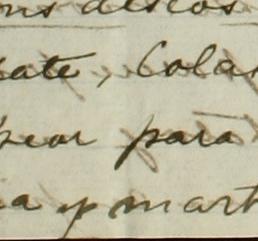 ns deseos
ate, Cola
peor para
a y mart